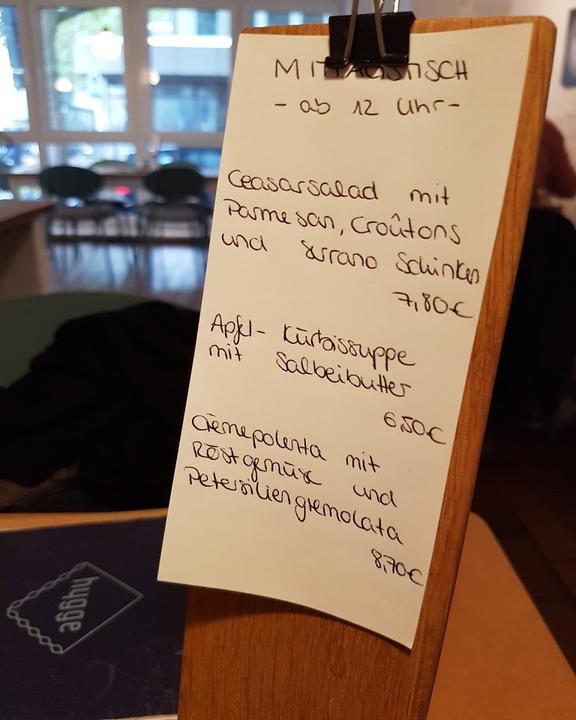 MITTAGSTISCH
- ab 12 Uhr -
Ceasarsalad mit
Parmesan, Croûtons
und Serrano Schinken
7,80€
Apfel- Kürbissuppe
mit Salbeibutter
6,50€
Crèmepolenta mit
Röstgemüse und
Petersiliengremolata
8,70€
hygge